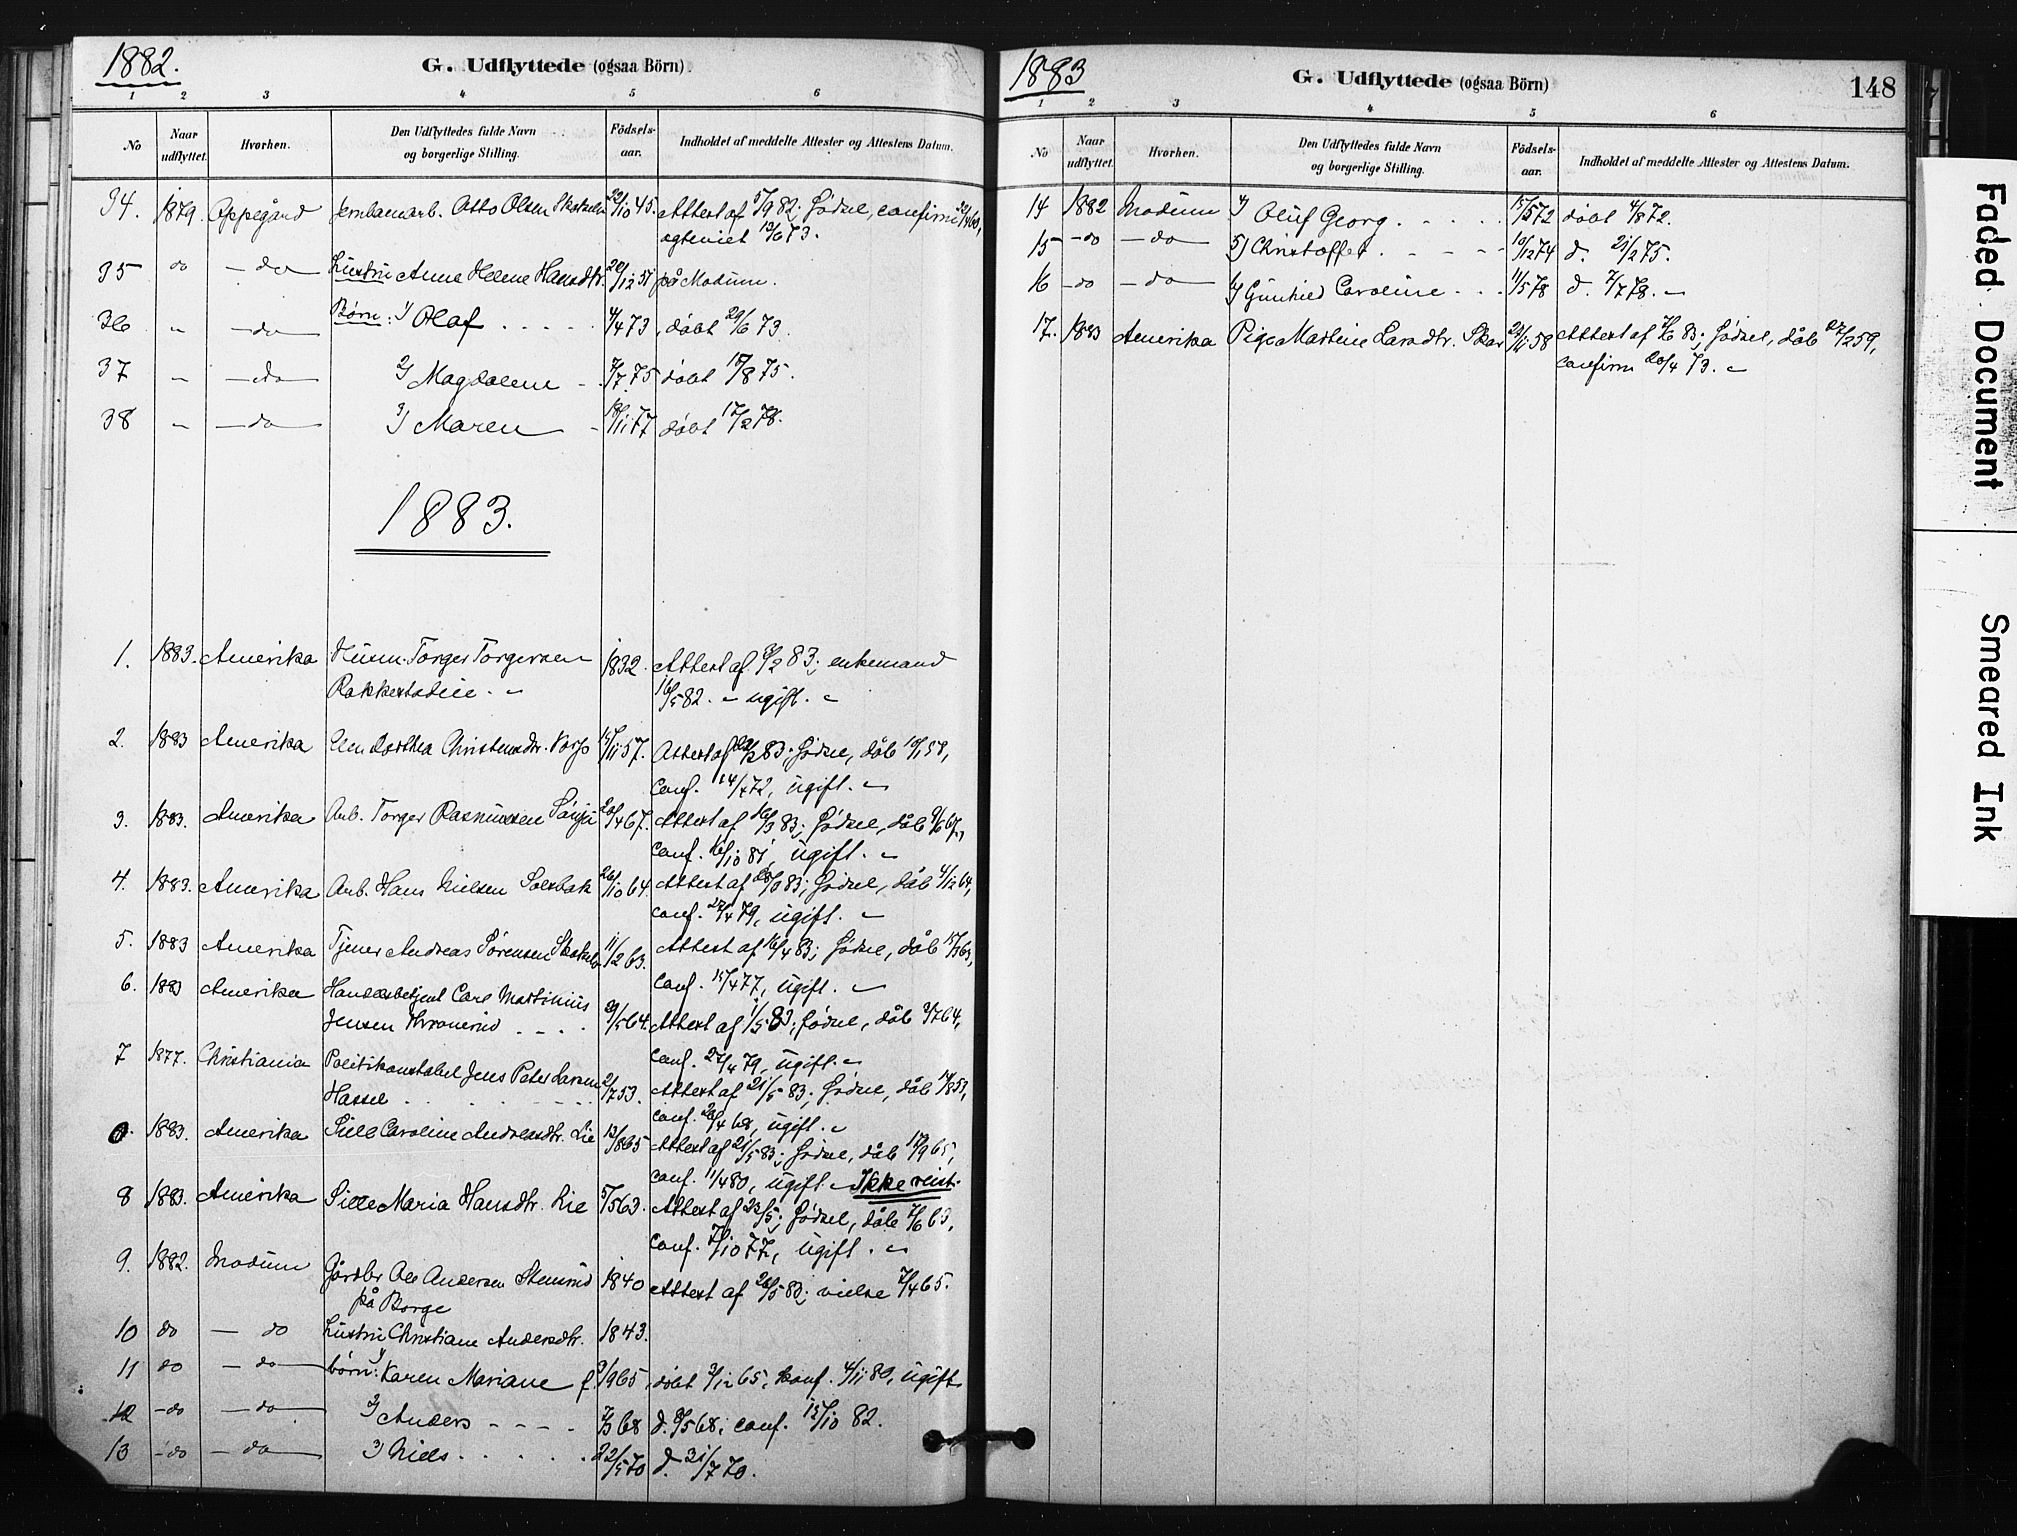 1882.
G. Udflyttede (ogsaa Börn).
1 2 3 4 5 6
No
Naar udflyttet.
Hvorhen.
Den Udflyttedes fulde Navn og borgerlige Stilling.
Födsels-aar.
Indholdet af meddelte Attester og Attestens Datum.
34. 1879. Oppegård Jernbanearb. Otto Olsen 22/10 45. Attest af 5/9 82; födsel, confirm
ogteviet 13/6 73.
35 do - do Hustru Anne Helene Hansdtr. 20/12 51 på Modum.
36 " - do Börn: 1) Olaf . . . . . 4/4 73, döbt 29/6 73.
37 " - do 2) Magdalene - 7/7 75 döbt 15/8 75.
38 " - do 3) Maren - 18/11 77 döbt 17/2 78.
1883.
1. 1883. Amerika Husm. Torger Torgersen 1832. Attest af 8/2 83; enkemand
Rakkestadeie. 16/5 82. - ugift.
2. 1883 Amerika Elen Dorthea Christensdtr. 15/11 57. Attest af 83; födsel, dåb 10/1 58,
Conf. 14/4 72, ugift.
3. 1883. Amerika Arb. Torger Rasmussen 28/4 67. Attest af 16/3 83; födsel, dåb 9/6 67,
Conf. 16/10 81, ugift.
4. 1883. Amerika Arb. Hans Nielsen Solsbak 26/10 64. Attest af 83; födsel, dåb 4/12 64,
conf. 27/4 79, ugift.
5. 1883 Amerika Tjener Andreas Sörensen 11/2 63. Attest af 16/4 83; födsel, dåb 15/3 63,
Conf. 15/4 77, ugift.
6. 1883 Amerika Handelsbetjent Carl Martinius
Jensen . . . . 29/5 64. Attest af 1/5 83; födsel, dåb 3/7 64,
Conf. 27/4 79, ugift.
7 1877. Christiania Politikonstabel Jens Peter Larsen 2/7 53. Attest af 21/5 83; födsel, dåb 14/8 53,
Hassel . . . . . Conf. 26/4 68, ugift.
1883. Amerika Sille Caroline Andreasdtr. Lie 13/8 65 Attest af 21/5 83; födsel, dåb 17/9 65,
Conf. 11/4 80, ugift. Ikke reist.
8 1883. Amerika Sille Maria Hansdtr. Lie 5/5 63. Attest af 22/5; födsel, dåb 7/6 63,
Conf. 7/10 77, ugift.
9. 1882. Modum Gårdbr Ole Andersen Stensrud 1840 Attest af 26/5 83; vielse 7/4 65.
på Borge
10 do - do Hustru Christiane Andersdtr. 1843.
11 do - do börn: 1) Karen Mariane f. 3/9 65, döbt 3/12 65; Konf. 4/11 80, ugift
12 -do - do 2) Anders - - - - 7/3 68 d. 8/5 68; conf. 15/10 82.
13 -do - do 3) Niels . . . . . 22/5 70 d. 31/7 70.
1883
G. Udflyttede (ogsaa Börn)
148
1 2 3 4 5 6
No
Naar udflyttet.
Hvorhen.
Den Udflyttedes fulde Navn og borgerlige Stilling.
Födsels-aar.
Indholdet af meddelte Attester og Attestens Datum.
14 1882 Modum 4) Oluf Georg . . . . . 15/5 72 döbt 4/8 72.
15 -do - do 5) Christoffer . - - - 10/12 74 d. 21/2 75.
16 -do - do 6) Gunhild Caroline . . . 11/5 78 d. 7/7 78.
17. 1883 Amerika Pige Martine Larsdtr. Skar 29/11 58 Attest af 83; födsel, dåb 27/2 59,
Confirm 20/4 73.
Faded Document
Smeared Ink